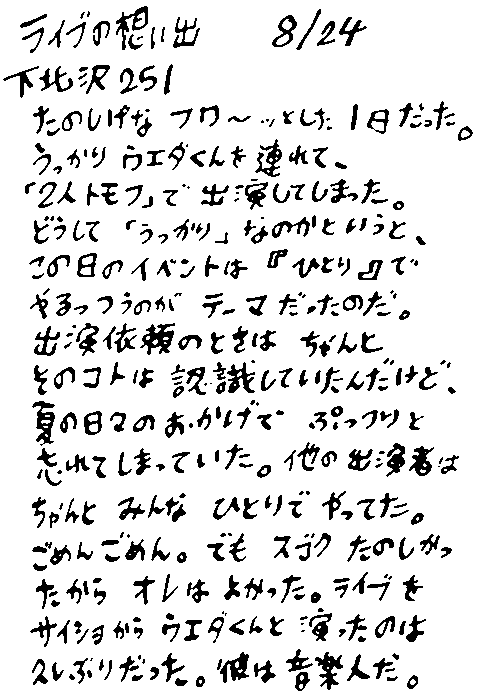 ライブの想い出 8/24
下北沢251
たのしげな フワ〜ッとした 1日だった。
うっかり ウエダくんを連れて、
「2人トモフ」で 出演してしまった。
どうして「うっかり」なのかというと、
この日のイベントは『ひとり』で
やるっつうのが テーマだったのだ。
出演依頼のときは ちゃんと
そのコトは 認識していたんだけど、
夏の日々のおかげで ぷっつりと
忘れてしまっていた。他の出演者は
ちゃんと みんな ひとりで やってた。
ごめんごめん。でも スゴク たのしかっ
たから オレは よかった。ライブを
サイショから ウエダくんと 演ったのは
久しぶりだった。彼は音楽人だ。